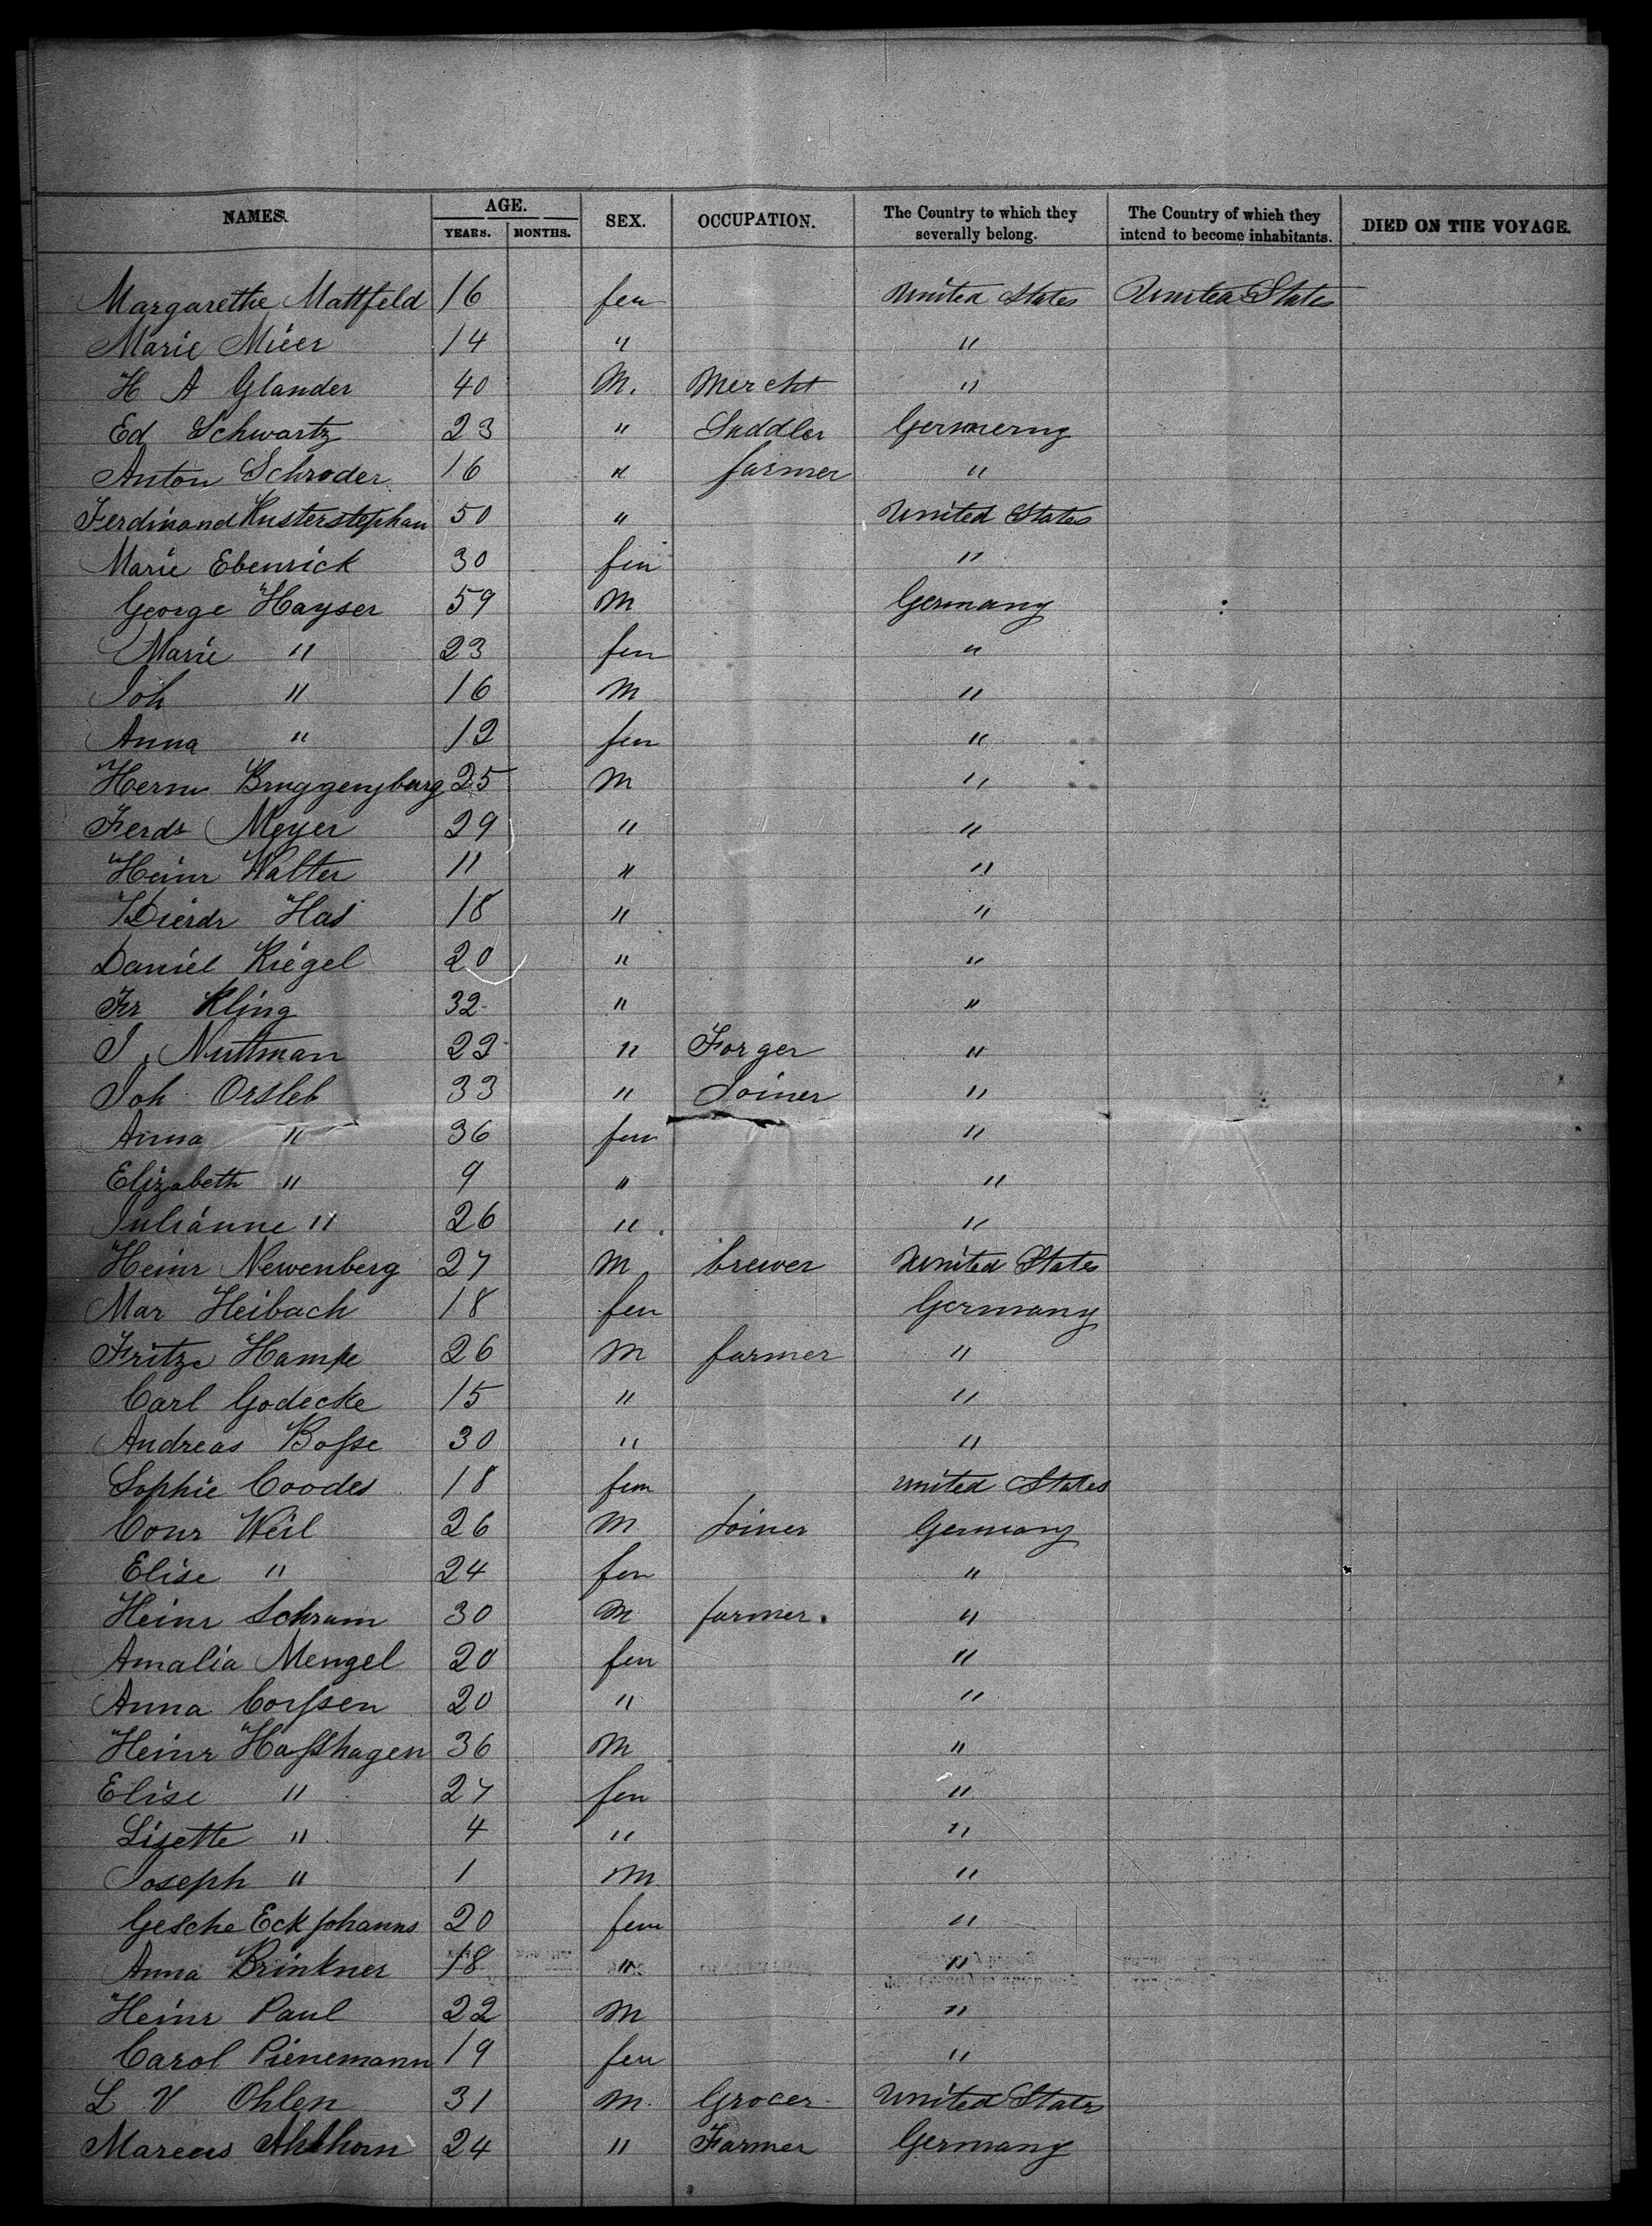 NAMES. AGE. YEARS. MONTHS. SEX. OCCUPATION. The Country to which they severally belong. The Country of which they intend to become inhabitants. DIED ON THE VOYAGE.
Margarethe Mattfeld 16 fem United States United States
Marie Mieer 14 " "
H A Glander 40 M. Mercht "
Ed Schwartz 23 " Saddler Germerny
Anton Schroder 16 " farmer "
Ferdinand Kusterstephan 50 " United States
Marie Ebenrick 30 fem "
George Hayser 59 M Germany
Marie " 23 fem "
Joh " 16 M "
Anna " 12 fem "
Herm Bruggenjburg 25 M "
Ferd Meyer 29 " "
Heinr Walter 11 " "
Dierdr Has 18 " "
Daniel Riegel 20 " "
Fr Kling 32 " "
J. Nuttman 22 " Forger "
Joh Orsleb 33 " Joiner "
Anna " 36 fem "
Elizabeth " 9 " "
Julianne " 26 " "
Heinr Newenberg 27 M brewer United States
Mar Heibach 18 fem Germany
Fritze Hampe 26 M farmer "
Carl Godecke 15 " "
Andreas Boſse 30 " "
Sophie Coodes 18 fem United States
Conr Weil 26 M Joiner Germany
Elise " 24 fem "
Heinr Schram 30 M farmer. "
Amalia Mengel 20 fem "
Anna Corſsen 20 " "
Heinr Haſshagen 36 M "
Elise " 27 fem "
Lizette " 4 " "
Joseph " 1 M "
Gesche Eckjohanns 20 fem "
Anna Brinkner 18 " "
Heinr Paul 22 M "
Carol Pienemann 19 fem "
L V Ohlen 31 M. Grocer United States
Marcus 24 " Farmer Germany